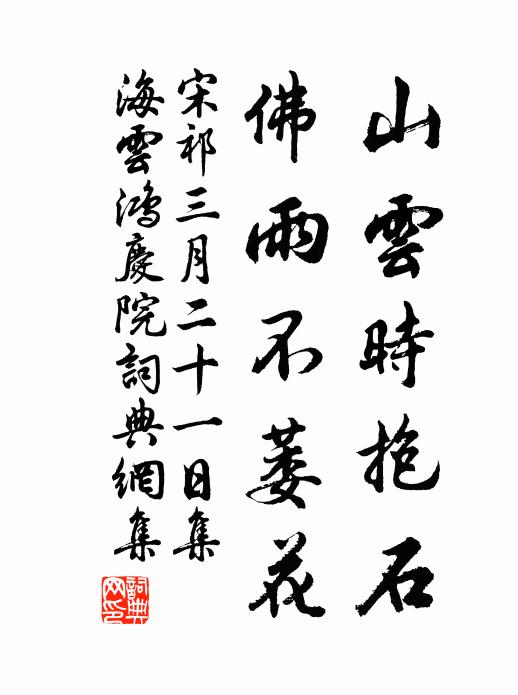 山雲時抱石
佛雨不萎花
宋祁三月二十一日集
海雲鴻慶院詞典網集
詞典
网印